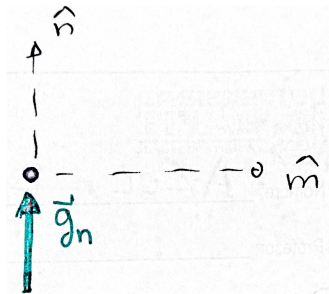 n̂
m̂
g⃗n